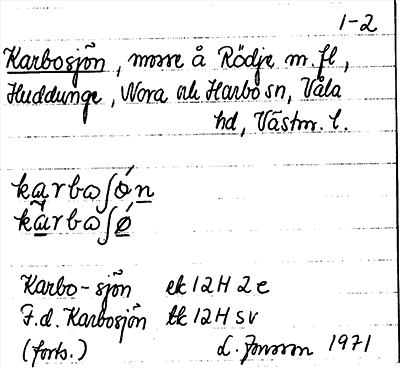 1-2
Karbosjön, mosse å Rödje m.fl,
Huddunge, Nora och Harbo sn, Våla
hd, Västm. l.
karboʃön
karboʃø
Karbo-sjön ek 12H 2e
F.d. Karbosjön tk 12H sv
(forts.) L. Jonsson 1971